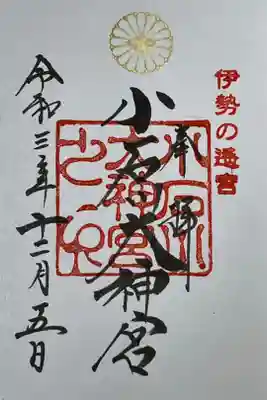 伊勢の遥宮
奉拝
小石川大神宮
小石川
大神宮
之印
令和三年十二月五日